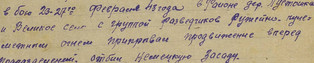 в бою 23-27го февраля 43 года в районе дер.
и Великое село с группой разведчиков ружейно-пуле-
метным огнем прикрывал продвижение вперед
подразделений, отбил немецкую засаду.